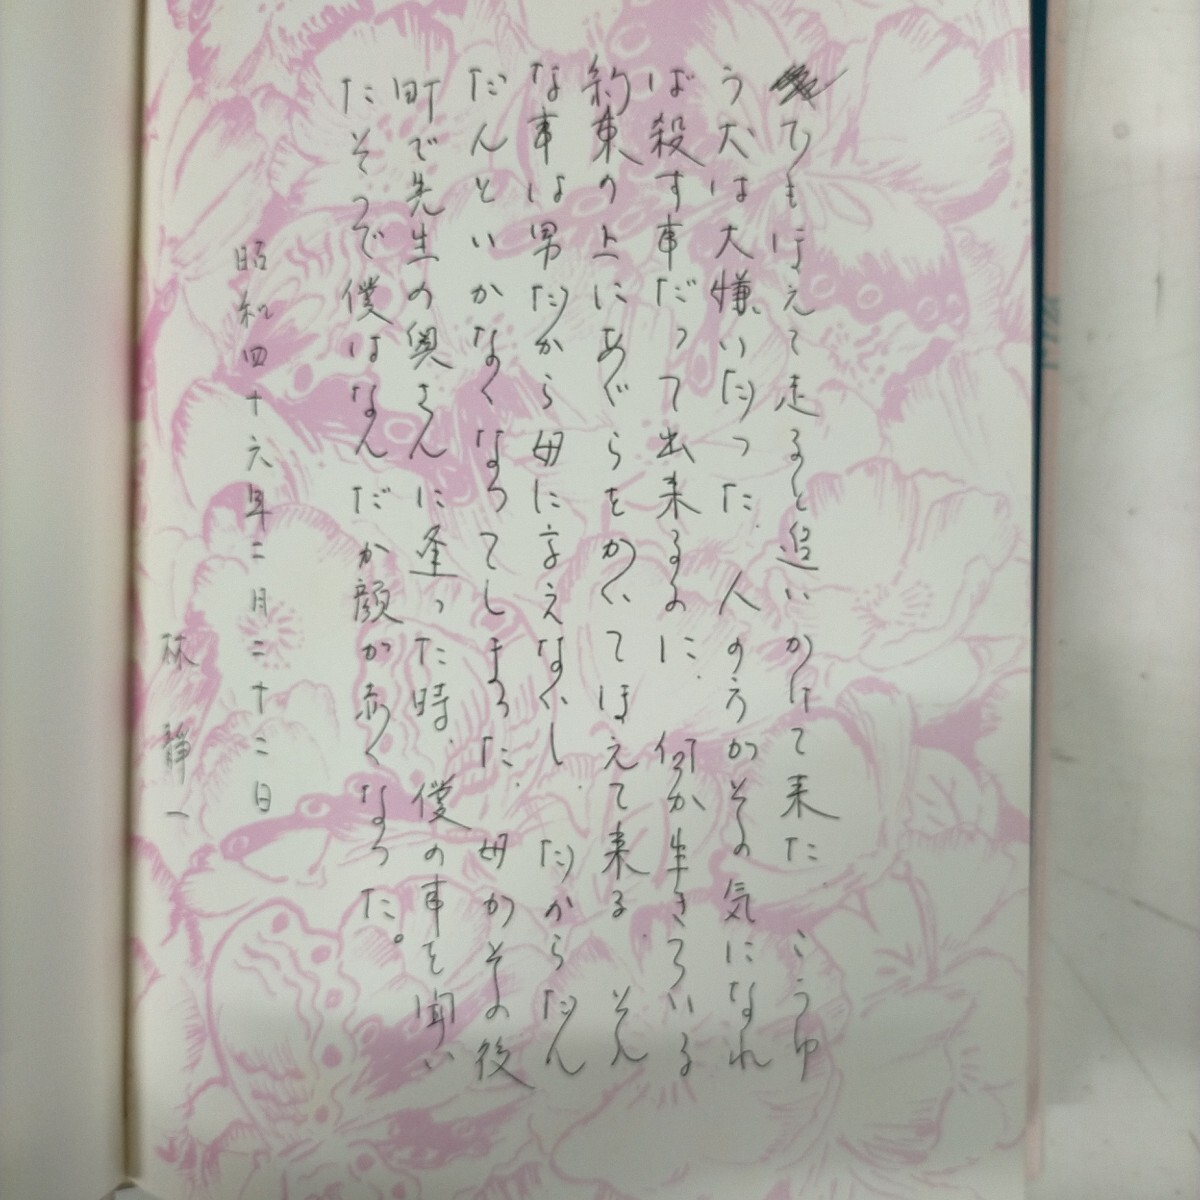 でもほえて走ると追いかけて来た。こうゆ
う犬は大嫌いだった。人の方がその気になれ
ば殺す事だって出来るのに、何か生きている
約束の上にあぐらをかいてほえて来る。そん
な事は男だから母に言えないし、だからだん
だんといかなくなってしまった。母がその後
町で先生の奥さんに逢った時、僕の事を聞い
たそうで僕はなんだか顔が赤くなった。
昭和四十六年二月二十二日
林静一